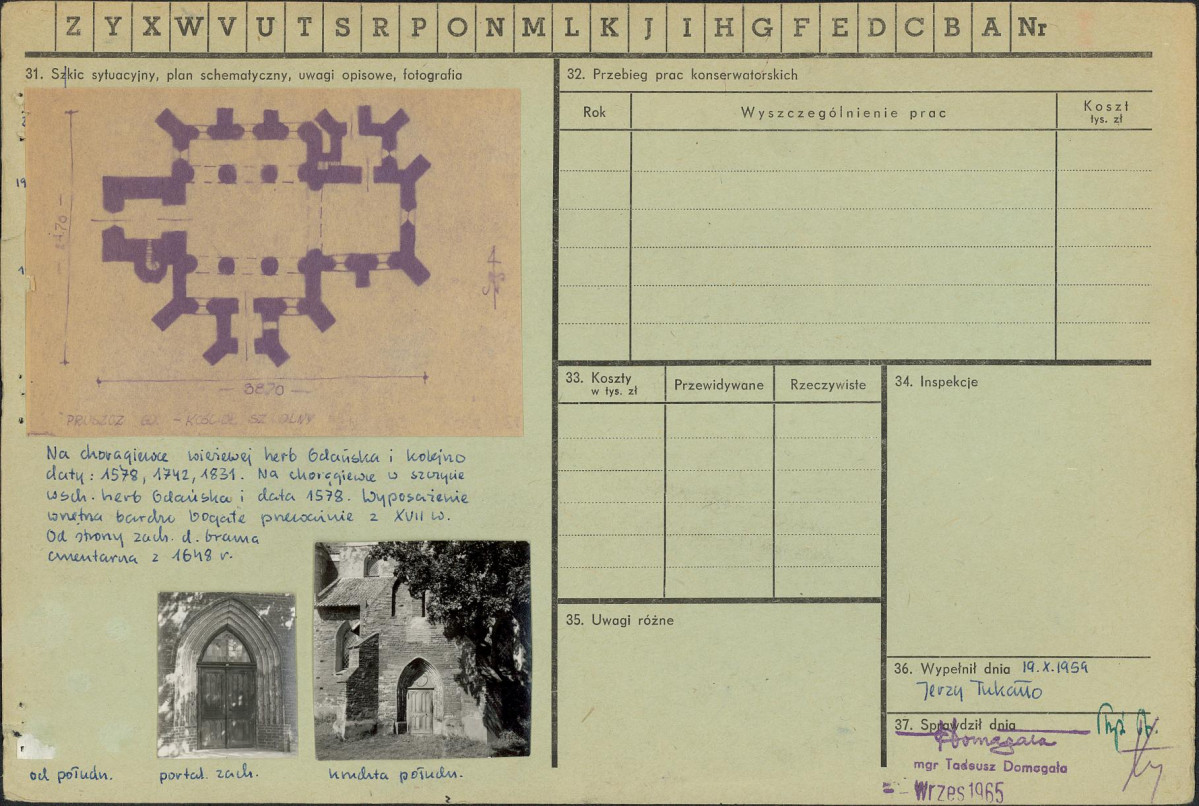 Z Y X W V U T S R P O N M L K J I H G F E D C B A Nr
31. Szkic sytuacyjny, plan schematyczny, uwagi opisowe, fotografia
24.70
38.70
PRUSZCZ GD. - KOŚCIÓŁ
Na chorągiewce wieżowej herb Gdańska i kolejno
daty: 1578, 1742, 1831. Na chorągiewce w szczycie
wsch. herb Gdańska i data 1578. Wyposażenie
wnętrza bardzo bogate przeważnie z XVII w.
Od strony zach. d. brama
cmentarna z 1648 r.
od połudn.
portal. zach.
kruchta połudn.
32. Przebieg prac konserwatorskich
Rok
Wyszczególnienie prac
Koszt
tys. zł
33. Koszty
w tys. zł
Przewidywane
Rzeczywiste
34. Inspekcje
35. Uwagi różne
36. Wypełnił dnia 19.X.1959
Jerzy
37. Sprawdził dnia
Domagała
mgr Tadeusz Domagała
Wrzes 1965